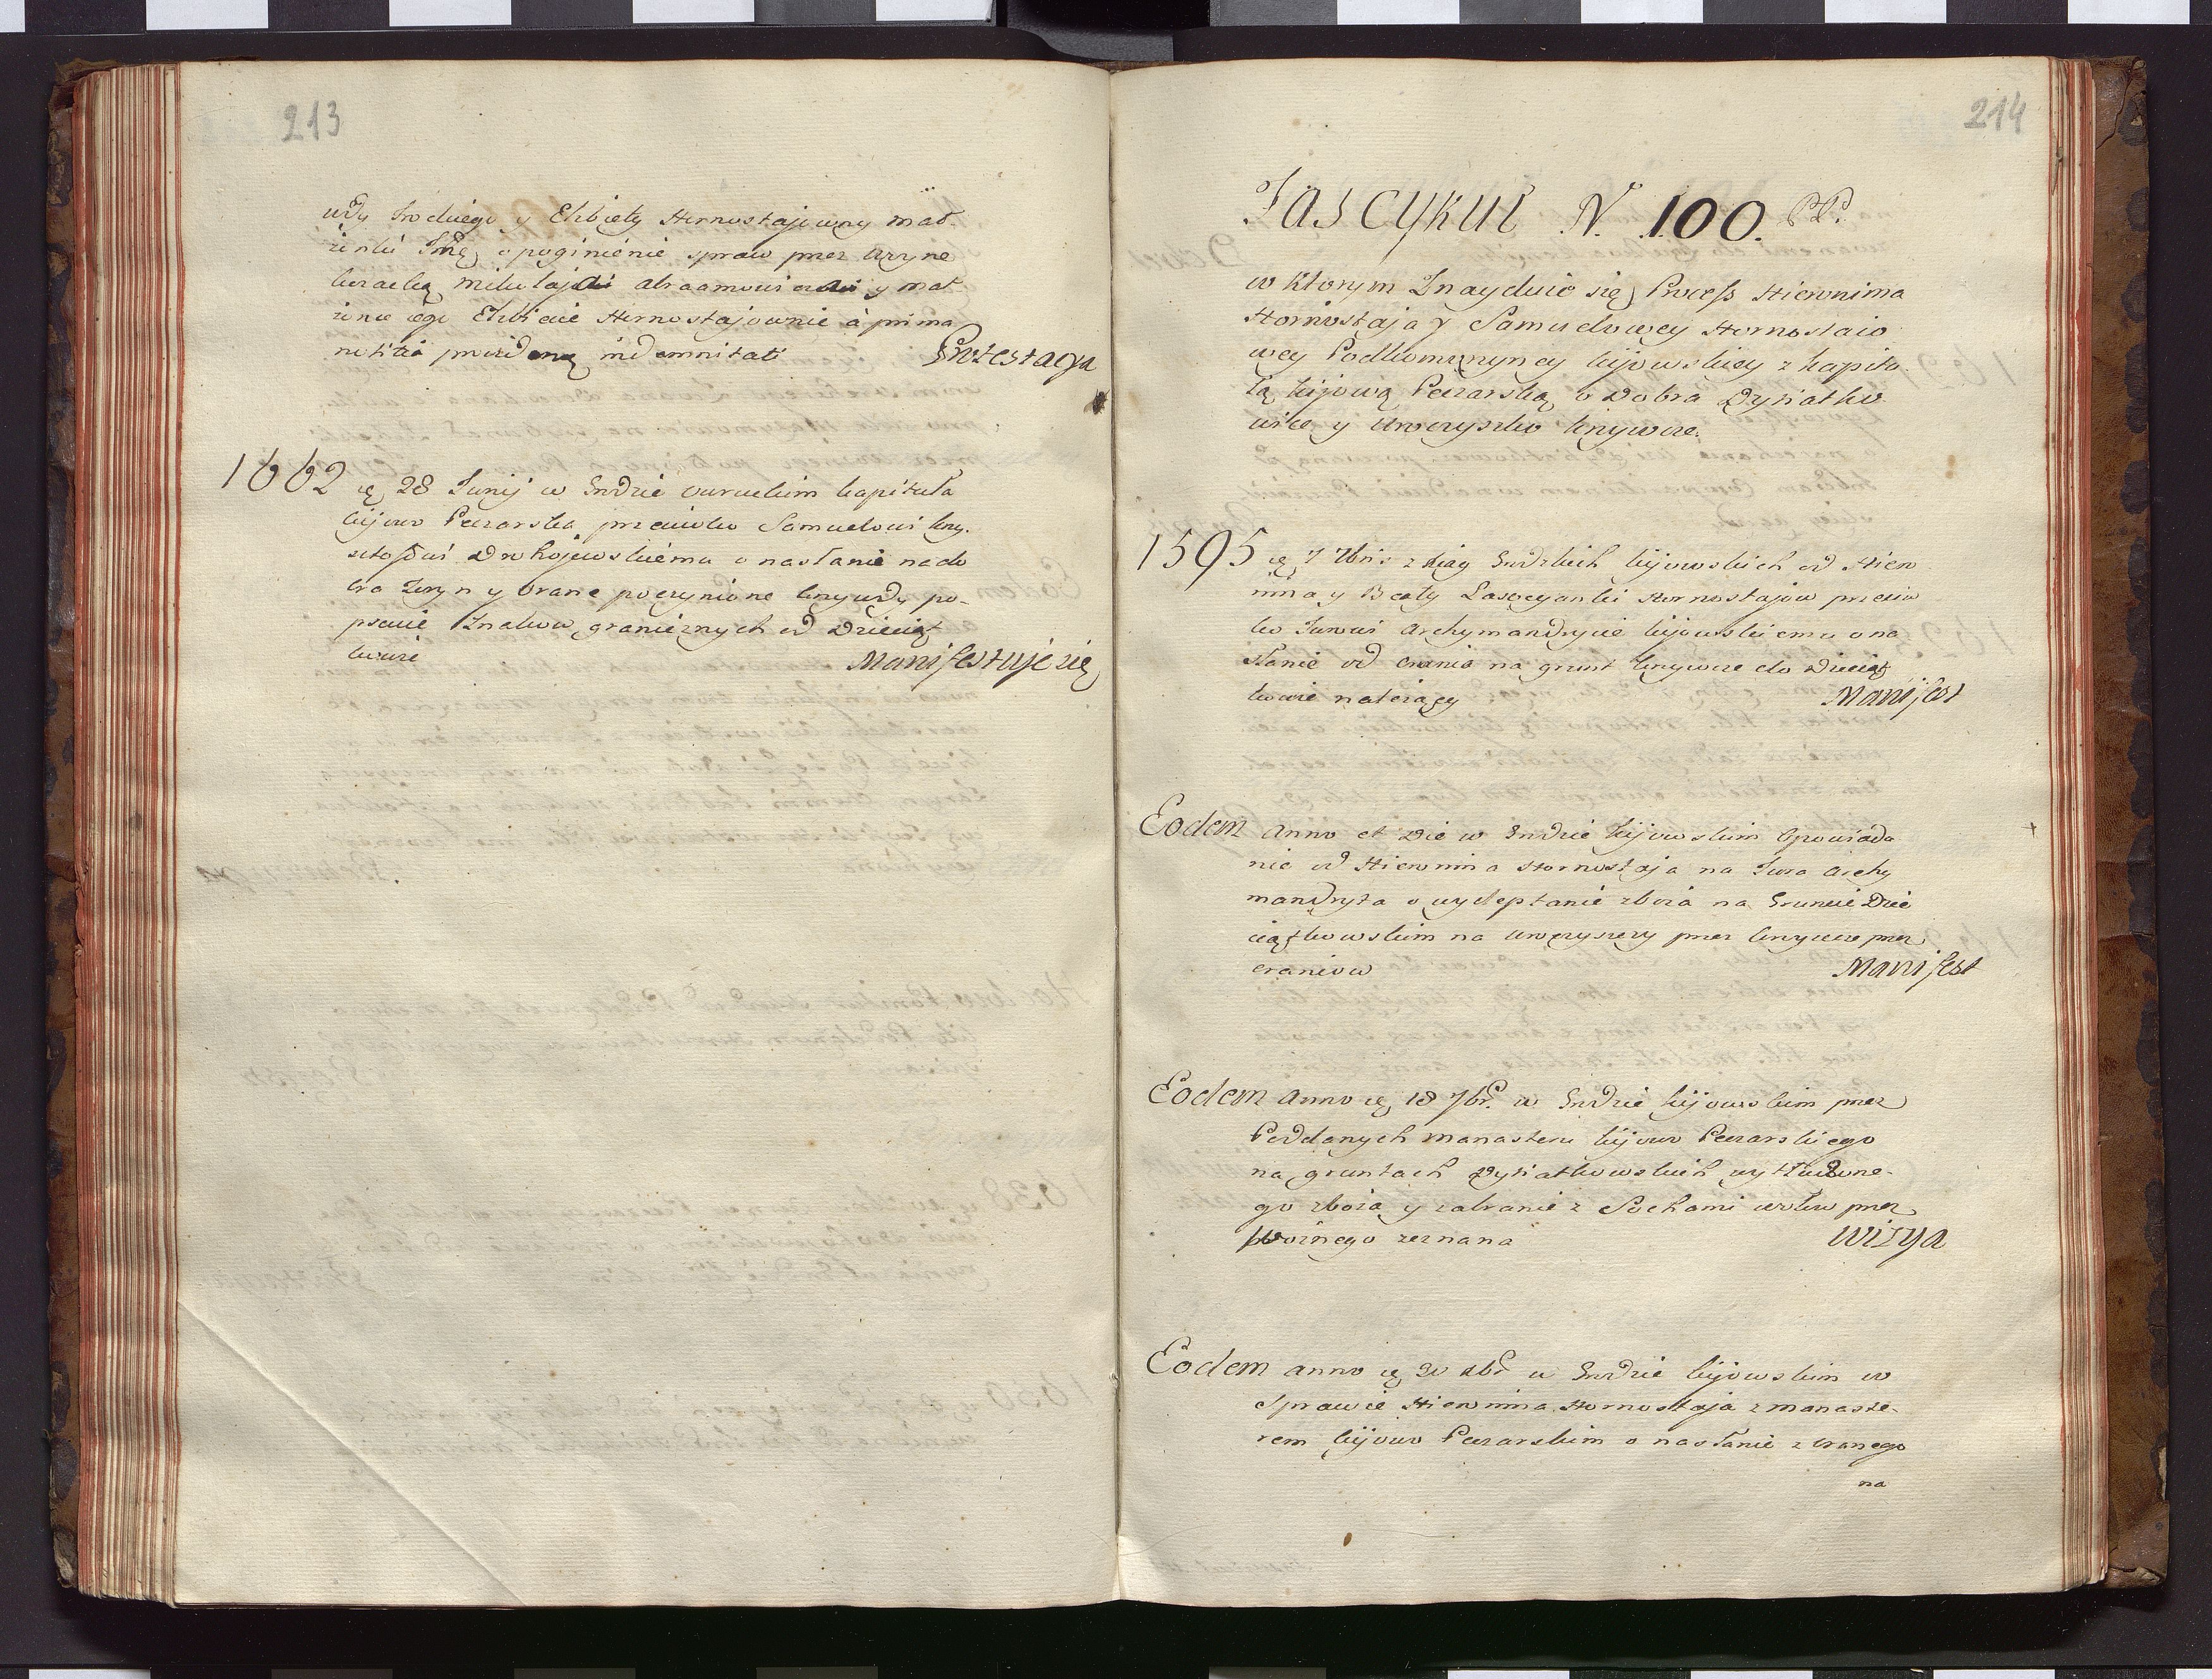 213
wdy Trockiego y Elżbiety Hornostajowny mał-
żenki Imę o poginienie spraw przez
Mikołajowi Abraamowiczowi y mał
żonce iego Elżbiecie Hornostajownie à prima
notitia indemnitati Protestacya
1662 ię 28 Junij w Grodzie owruckim kapituła
kijowo Peczarska przeciwko Samuelowi Krzy-
sztoffowi Drohojewskiemu o nasłanie na do
bra y branie poczynione krzywdy po-
psowie Znakow granicznych od Dzieciąt
kowic Manifestuje się
214
Fascykuł N. 100. PP.
w ktorym Znayduie się Process Hieronima
Hornostaja y Samuelowey Hornostaio
wey Podkomorzyney kijowskiey z kapitu
łą kijowo Peczarską o Dobra Dytiatko
wice y Uroczysko Krzywcze.
1595 ię 7 7bris z xiąg Grodzkich kijowskich od Hiero
nima y Beaty Lasoczanki Hornostajow przeciw
ko Jurowi Archymandrycie kijowskiemu o na
słanie od na grunt Krzywcze do Dzieciąt
kowic należący Manifest
Eodem anno et die w Grodzie kijowskim Opowiada
nie od Hieronima Hornostaja na Jura Archy
mandryta o wydeptanie zboża na Gruncie Dzie
ciątkowskim na uroczyszczy przez Krzywcze przez
Manifest
Eodem anno ię 18 7br. w Grodzie kijowskim przez
Poddanych manasteru kijowo Peczarskiego
na gruntach Dytiatkowskich wytłuczone-
go zboża y zabranie z Sochami wołow przez
woźnego zeznana Wizya
Eodem anno ię w Grodzie kijowskim w
Sprawie Hieronima Hornostaja z manaste-
rem kijowo Peczarskim o nasłanie zbranego
na